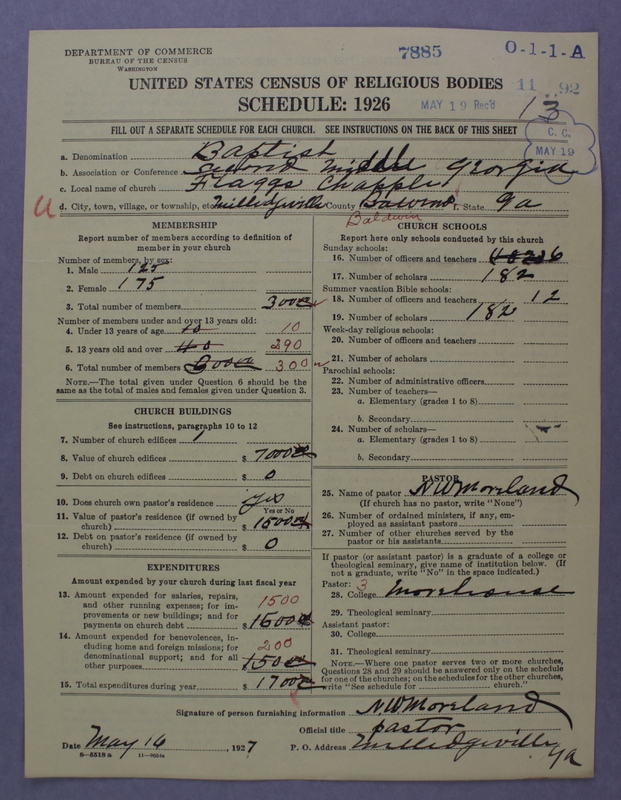 DEPARTMENT OF COMMERCE
BUREAU OF THE CENSUS
WASHINGTON
7885
O-1-1-A
UNITED STATES CENSUS OF RELIGIOUS BODIES
11 .. 92
SCHEDULE: 1926
MAY 19 Rec'd
13
FILL OUT A SEPARATE SCHEDULE FOR EACH CHURCH. SEE INSTRUCTIONS ON THE BACK OF THIS SHEET
C. C.
MAY 19
a. Denomination Baptist
b. Association or Conference Second Middle Georgia
c. Local name of church Flaggs Chapple
d. City, town, village, or township, etc. Milledgeville County f. State Ga
Baldwin
MEMBERSHIP
Report number of members according to definition of
member in your church
Number of members, by sex:
1. Male 125
2. Female 175
3. Total number of members 300
Number of members under and over 13 years old:
4. Under 13 years of age 10 10
5. 13 years old and over 290
6. Total number of members 300
NOTE.—The total given under Question 6 should be the
same as the total of males and females given under Question 3.
CHURCH BUILDINGS
See instructions, paragraphs 10 to 12
7. Number of church edifices 1
8. Value of church edifices $ 7000
9. Debt on church edifices $ 0
10. Does church own pastor's residence yes
Yes or No
11. Value of pastor's residence (if owned by
church) $ 1500
12. Debt on pastor's residence (if owned by
church) $ 0
EXPENDITURES
Amount expended by your church during last fiscal year
13. Amount expended for salaries, repairs,
and other running expenses; for im-
provements or new buildings; and for
payments on church debt $ 1500
14. Amount expended for benevolences, in-
cluding home and foreign missions; for
denominational support; and for all
other purposes 200
15. Total expenditures during year $ 1700
CHURCH SCHOOLS
Report here only schools conducted by this church
Sunday schools:
16. Number of officers and teachers
17. Number of scholars 182
Summer vacation Bible schools:
18. Number of officers and teachers 12
19. Number of scholars 182
Week-day religious schools:
20. Number of officers and teachers
21. Number of scholars
Parochial schools:
22. Number of administrative officers
23. Number of teachers—
a. Elementary (grades 1 to 8)
b. Secondary
24. Number of scholars—
a. Elementary (grades 1 to 8)
b. Secondary
PASTOR
25. Name of pastor N W Moreland
(If church has no pastor, write "None")
26. Number of ordained ministers, if any, em-
ployed as assistant pastors
27. Number of other churches served by the
pastor or his assistants
If pastor (or assistant pastor) is a graduate of a college or
theological seminary, give name of institution below. (If
not a graduate, write "No" in the space indicated.)
Pastor: 3
28. College Morehouse
29. Theological seminary
Assistant pastor:
30. College
31. Theological seminary
NOTE.—Where one pastor serves two or more churches,
Questions 28 and 29 should be answered only on the schedule
for one of the churches; on the schedules for the other churches,
write "See schedule for church."
Signature of person furnishing information N W Moreland
Official title pastor
Date May 16, 1927 P. O. Address Milledgeville Ga
8—5518 a